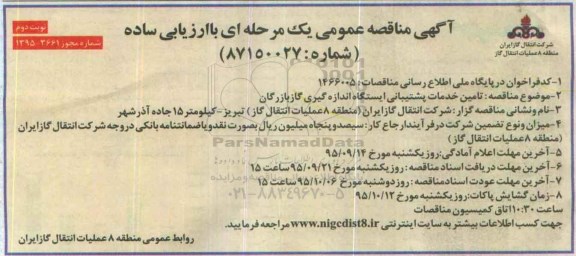 نوبت دوم
شماره مجوز ۳۶۶۱-۱۳۹۵
آگهی مناقصه عمومی یک مرحله ای با ارزیابی ساده
(شماره: ۸۷۱۵۰۰۲۷)
شرکت انتقال گاز ایران
منطقه ۸ عملیات انتقال گاز
۱-کدفراخوان درپایگاه ملی اطلاع رسانی مناقصات: ۱۴۶۶۰۰۵
۲-موضوع مناقصه: تامین خدمات پشتیبانی ایستگاه اندازه گیری گاز بازرگان
۳-نام ونشانی مناقصه گزار: شرکت انتقال گاز ایران (منطقه ۸ عملیات انتقال گاز) تبریز-کیلومتر ۱۵ جاده آذرشهر
۴-میزان ونوع تضمین شرکت درفرآیند ارجاع کار: سیصد و پنجاه میلیون ریال بصورت نقد ویا ضمانتنامه بانکی دروجه شرکت انتقال گاز ایران
(منطقه ۸ عملیات انتقال گاز)
۵-آخرین مهلت اعلام آمادگی: روز یکشنبه مورخ ۹۵/۰۹/۱۴
۶-آخرین مهلت دریافت اسناد مناقصه: روز یکشنبه مورخ ۹۵/۰۹/۲۱ ساعت ۱۵
۷-آخرین مهلت عودت اسناد مناقصه: روز دوشنبه مورخ ۹۵/۱۰/۰۶ ساعت ۱۵
۸-زمان گشایش پاکات: روز یکشنبه مورخ ۹۵/۱۰/۱۲
ساعت ۱۱:۳۰ اتاق کمیسیون مناقصات
جهت کسب اطلاعات بیشتر به سایت اینترنتی www.nigcdist8.ir مراجعه فرمایید.
روابط عمومی منطقه ۸ عملیات انتقال گاز ایران
ParsNamadData
۰۲۱-۸۸۳۴۹۶۷۰-۵